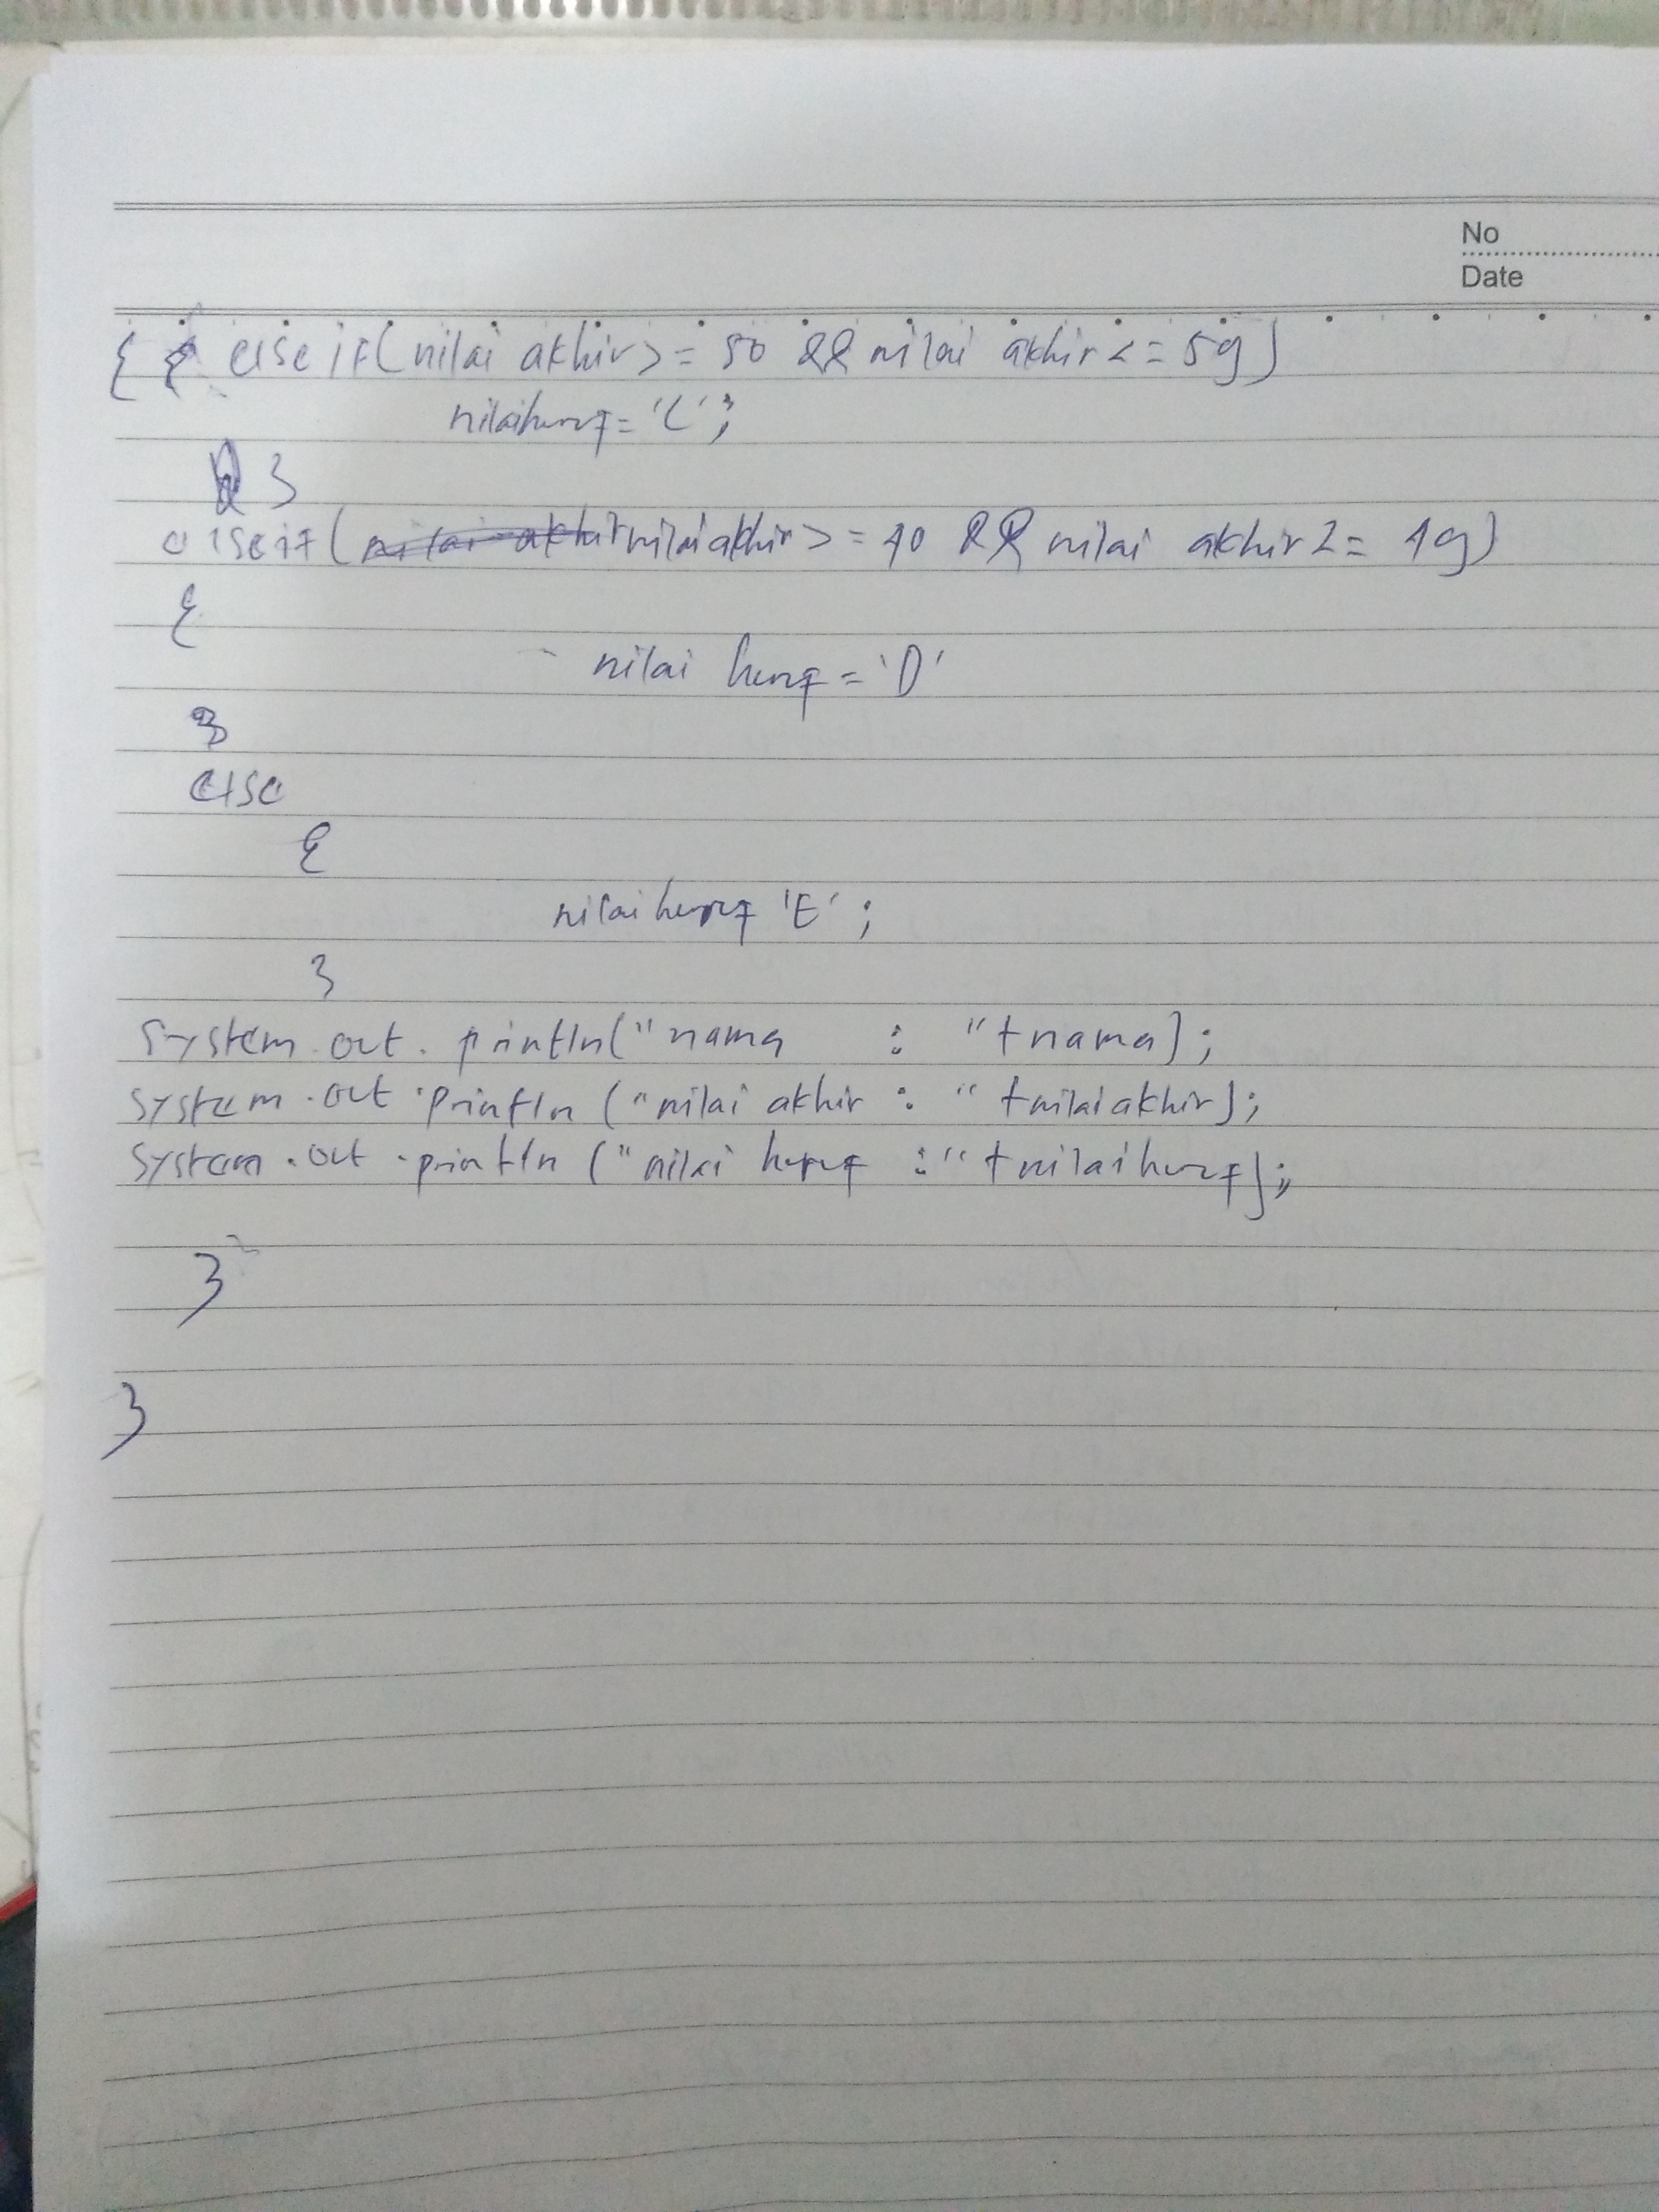 No
Date
{ else if(nilai akhir>= 50 && nilai akhir <= 59)
nilaihuruf= 'C';
}
else if (nilai akhir>= 40 && nilai akhir <= 49)
{
nilai huruf = 'D'
}
else
{
nilai huruf 'E' ;
}
System.out.println("nama : "+nama);
System.out.println ("nilai akhir : " +nilai akhir);
System.out.println ("nilai huruf :" +nilai huruf);
}
}